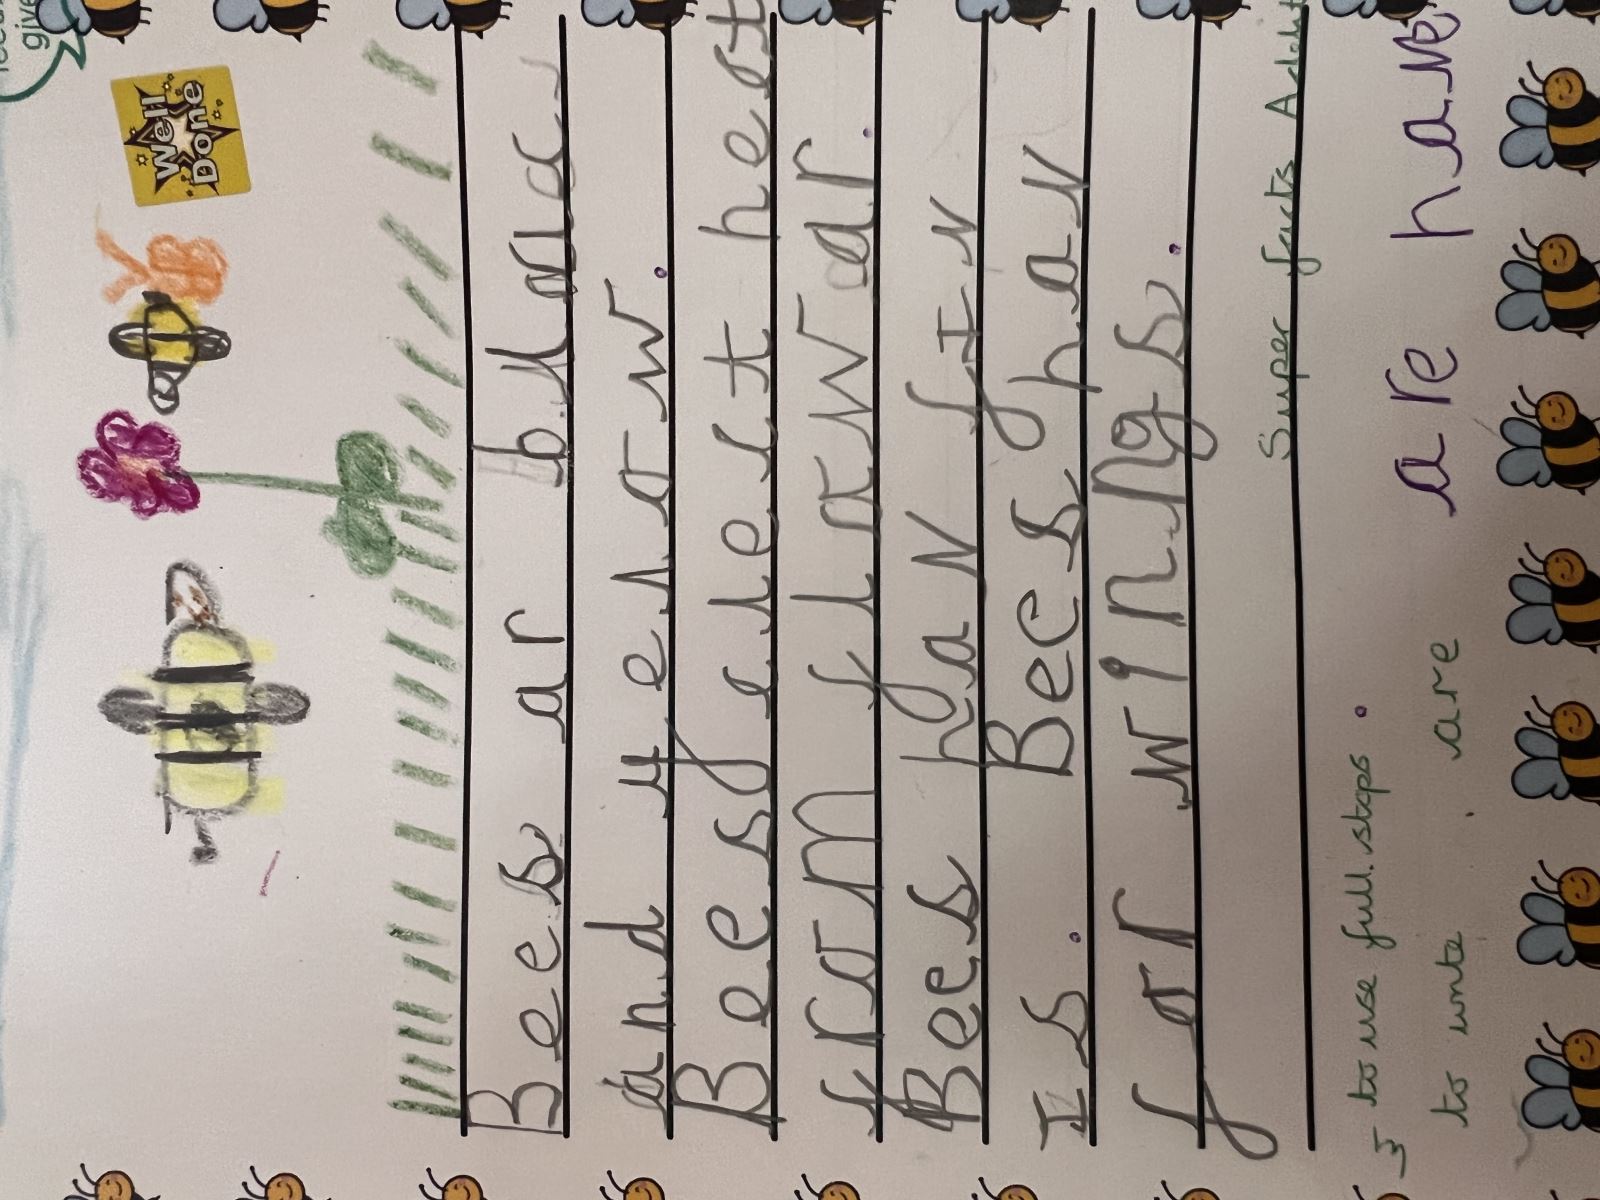 give
Well
Done
Bees ar blac
and yelow.
Bees colect nect
from flowar.
Bees hav fiv
Is. Bees hav
for wings.
Super facts
to use full stops.
to write are
are have